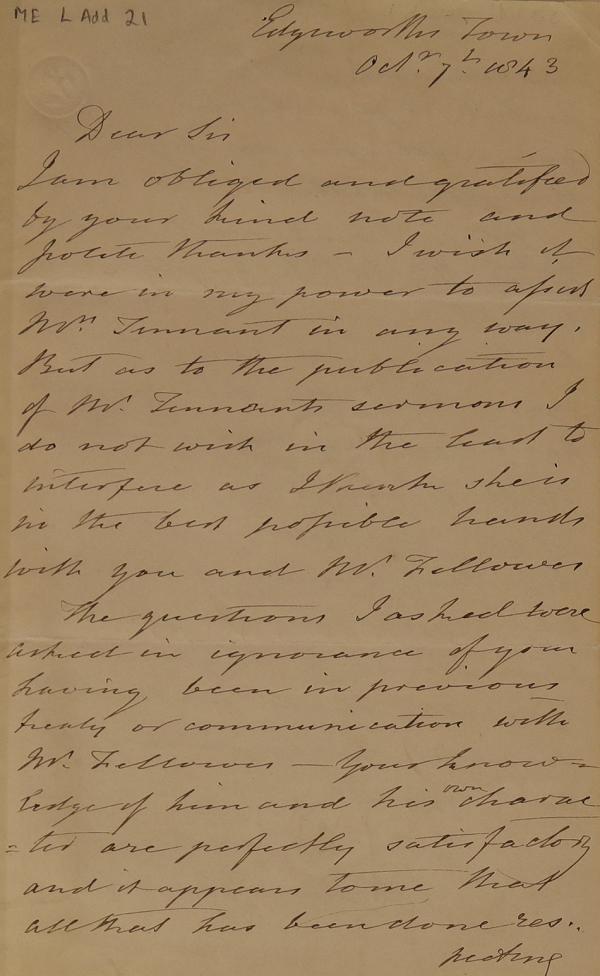 ME L Add 21
Edgeworths Town
Octr. 7th. 1843
Dear Sir
I am obliged and gratified
by your kind note and
polite thanks – I wish it
were in my power to assist
Mrs. Tennant in any way.
But as to the publication
of Mr. Tennants sermons I
do not wish in the least to
interfere as I know she is
in the best possible hands
with you and Mr. Fellowes
The questions I asked were
asked in ignorance of your
having been in previous
treaty or communication with
Mr. Fellowes – Your know=
ledge of him and his own charac
=ter are perfectly satisfactory
and it appears to me that
all that has been done res..
pecting